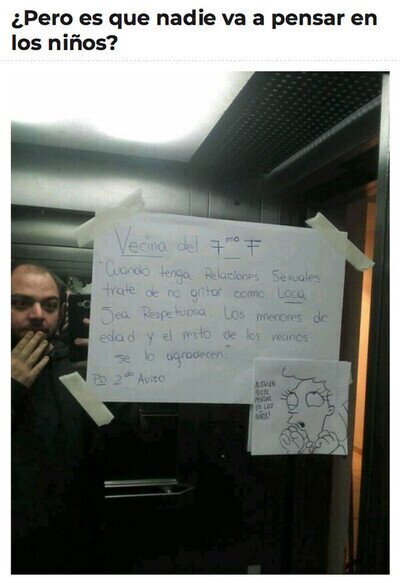 ¿Pero es que nadie va a pensar en
los niños?
Vecina del 7mo F
"Cuando tenga Relaciones Sexuales
trate de no gritar como Loca
Sea Respetuosa. Los menores de
edad y el resto de los vecinos
se lo agradecen."
PD 2do Aviso
ALGUIEN
PUEDE
PENSAR
EN LOS
NIÑOS!